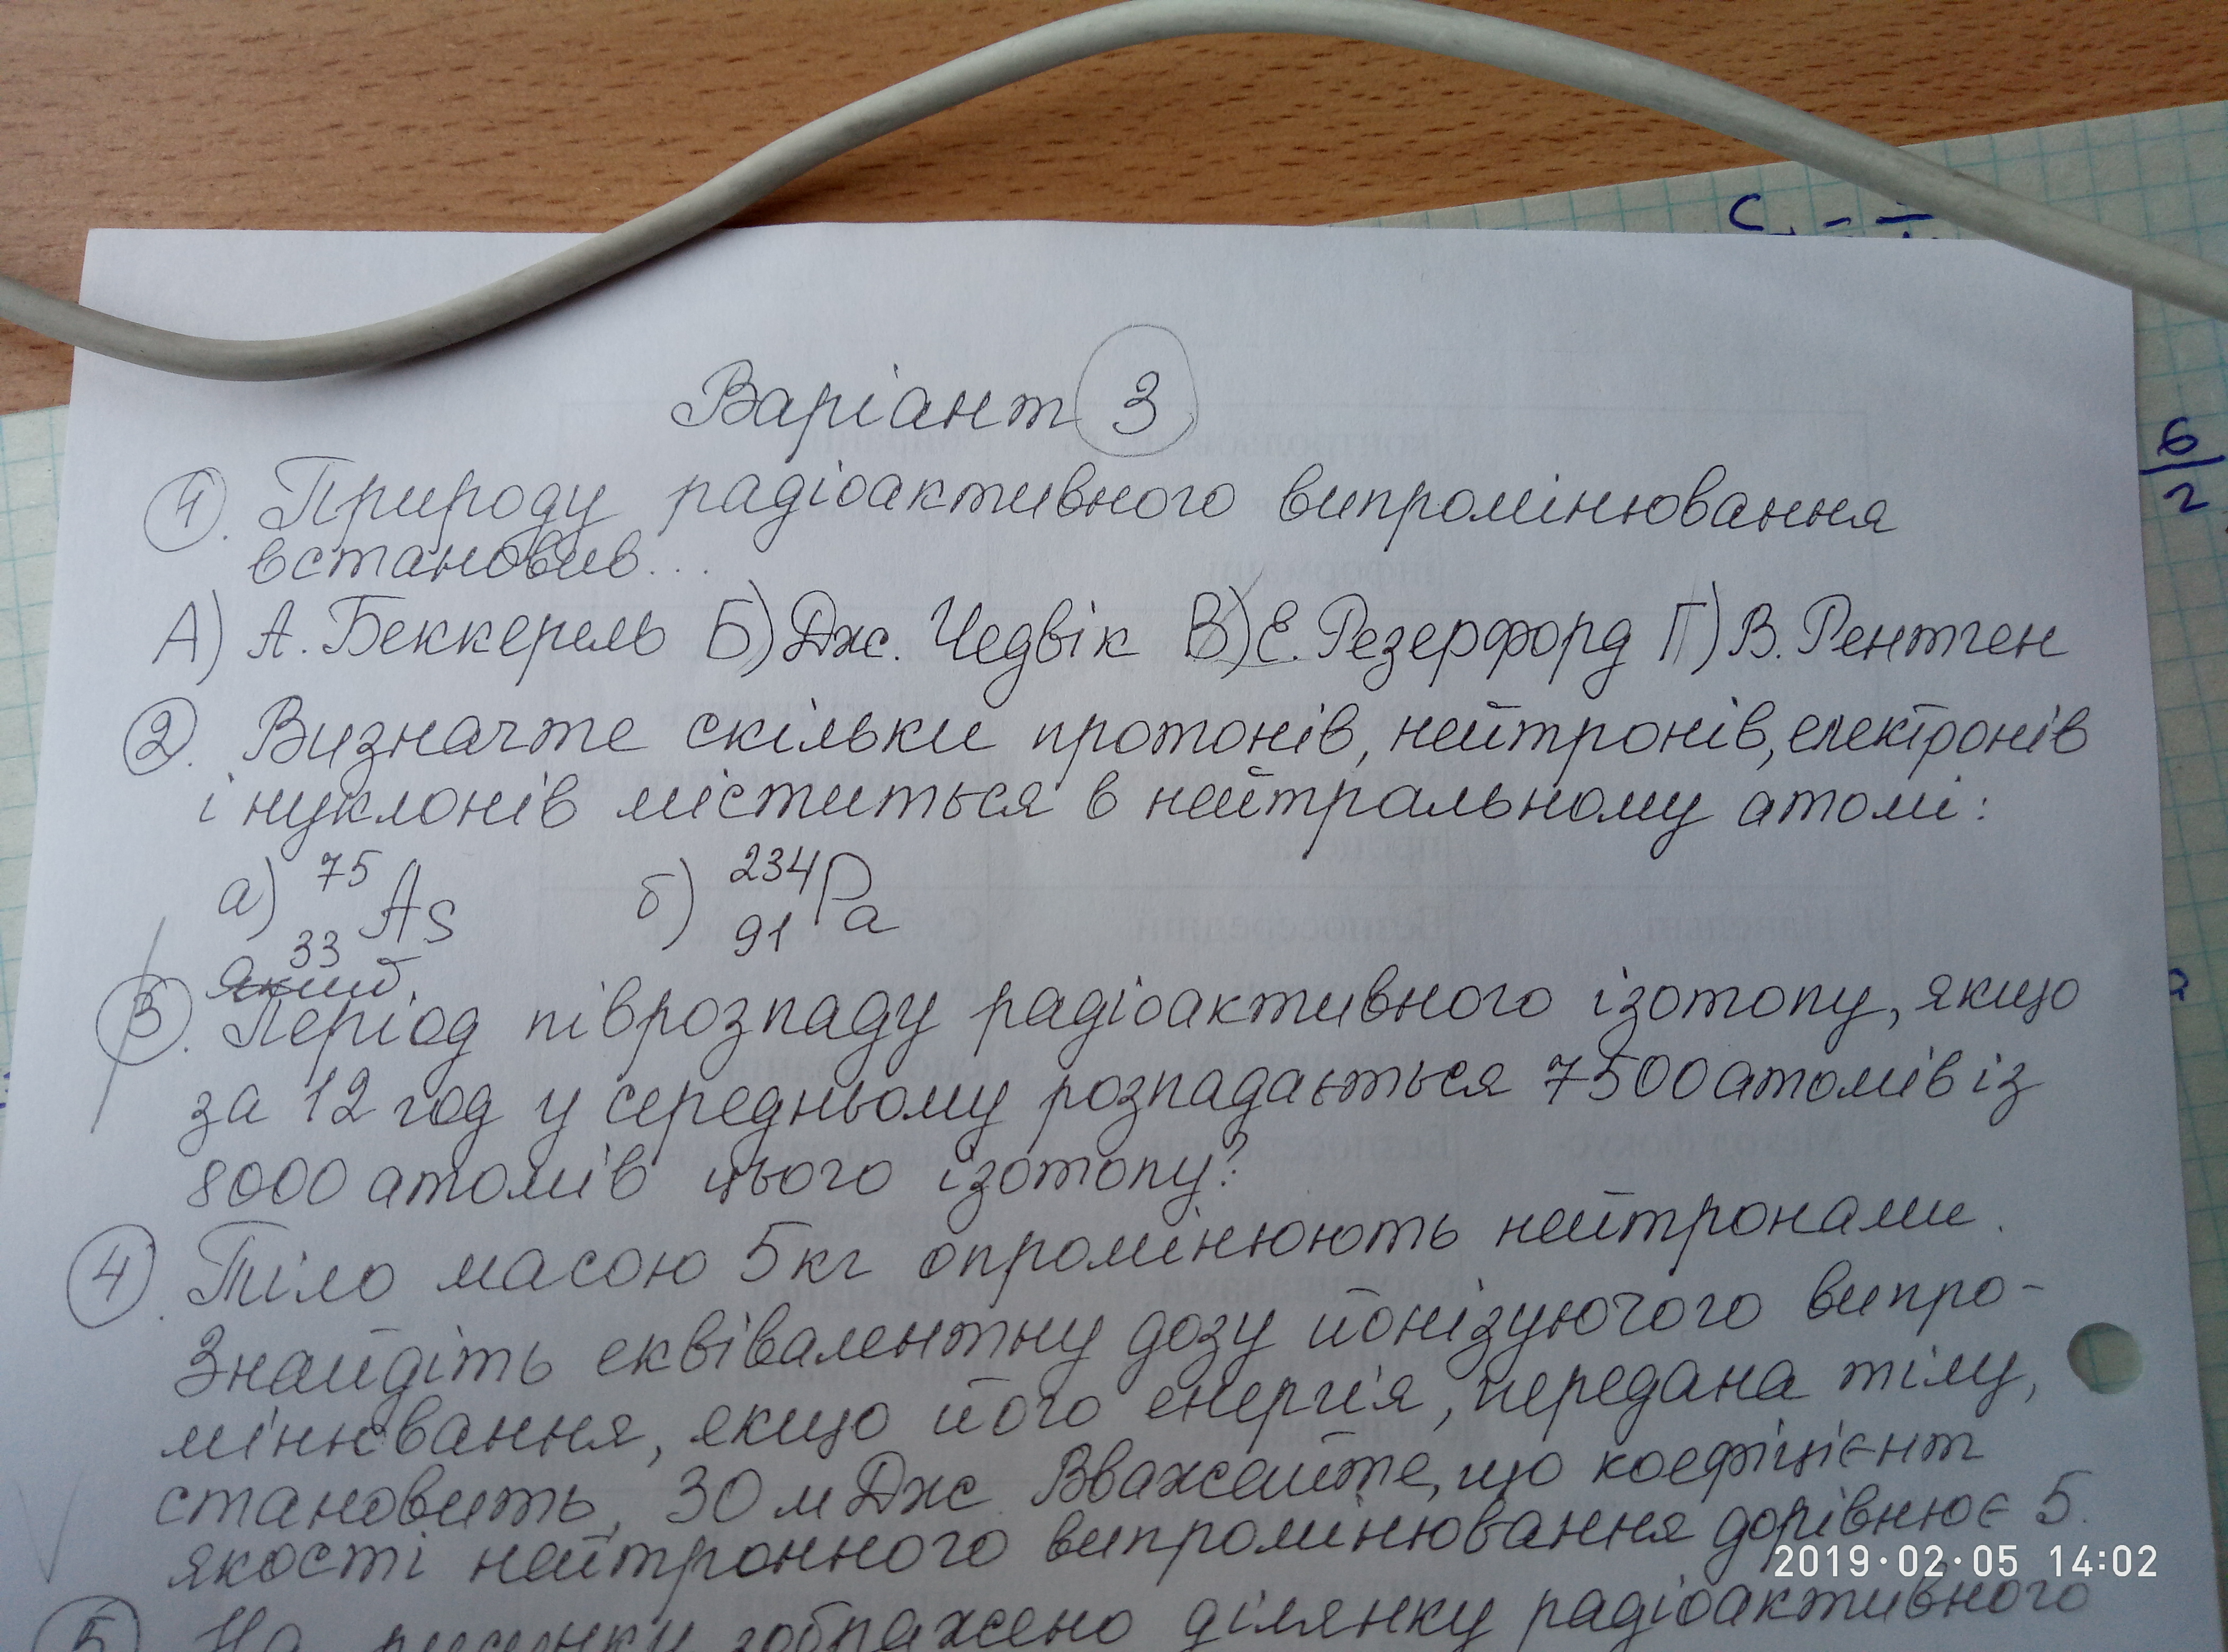 C
Варіант 3
1. Природу радіоактивного випромінювання
встановив...
А) А. Беккерель Б) Дж. Чедвік В) Е. Резерфорд Г) В. Рентген
2. Визначте скільки протонів, нейтронів, електронів
і нуклонів міститься в нейтральному атомі:
а) 75 33 As б) 234 91 Pa
Який
3. Період піврозпаду радіоактивного ізотопу, якщо
за 12 год у середньому розпадається 7500 атомів із
8000 атомів цього ізотопу?
4. Тіло масою 5кг опромінюють нейтронами.
Знайдіть еквівалентну дозу йонізуючого випро-
мінювання, якщо його енергія, передана тілу,
становить, 30 мДж. Вважайте, що коефіцієнт
якості нейтронного випромінювання дорівнює 5.
5 На рисунку зображено ділянку радіоактивного
6
2
2019·02·05 14:02